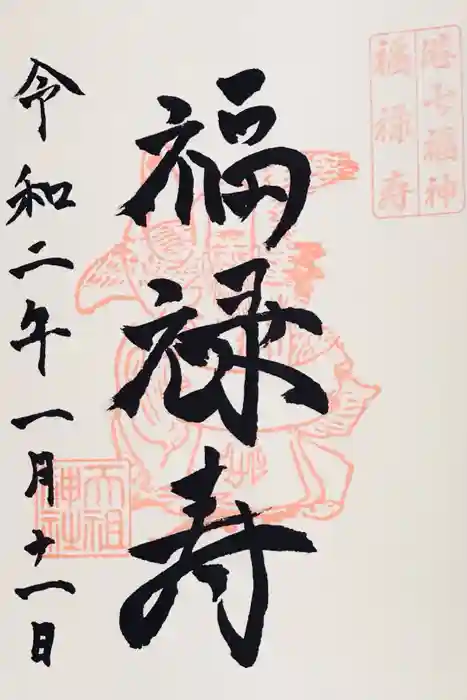 港七福神
福禄寿
福禄寿
天祖
神社
令和二年一月十一日